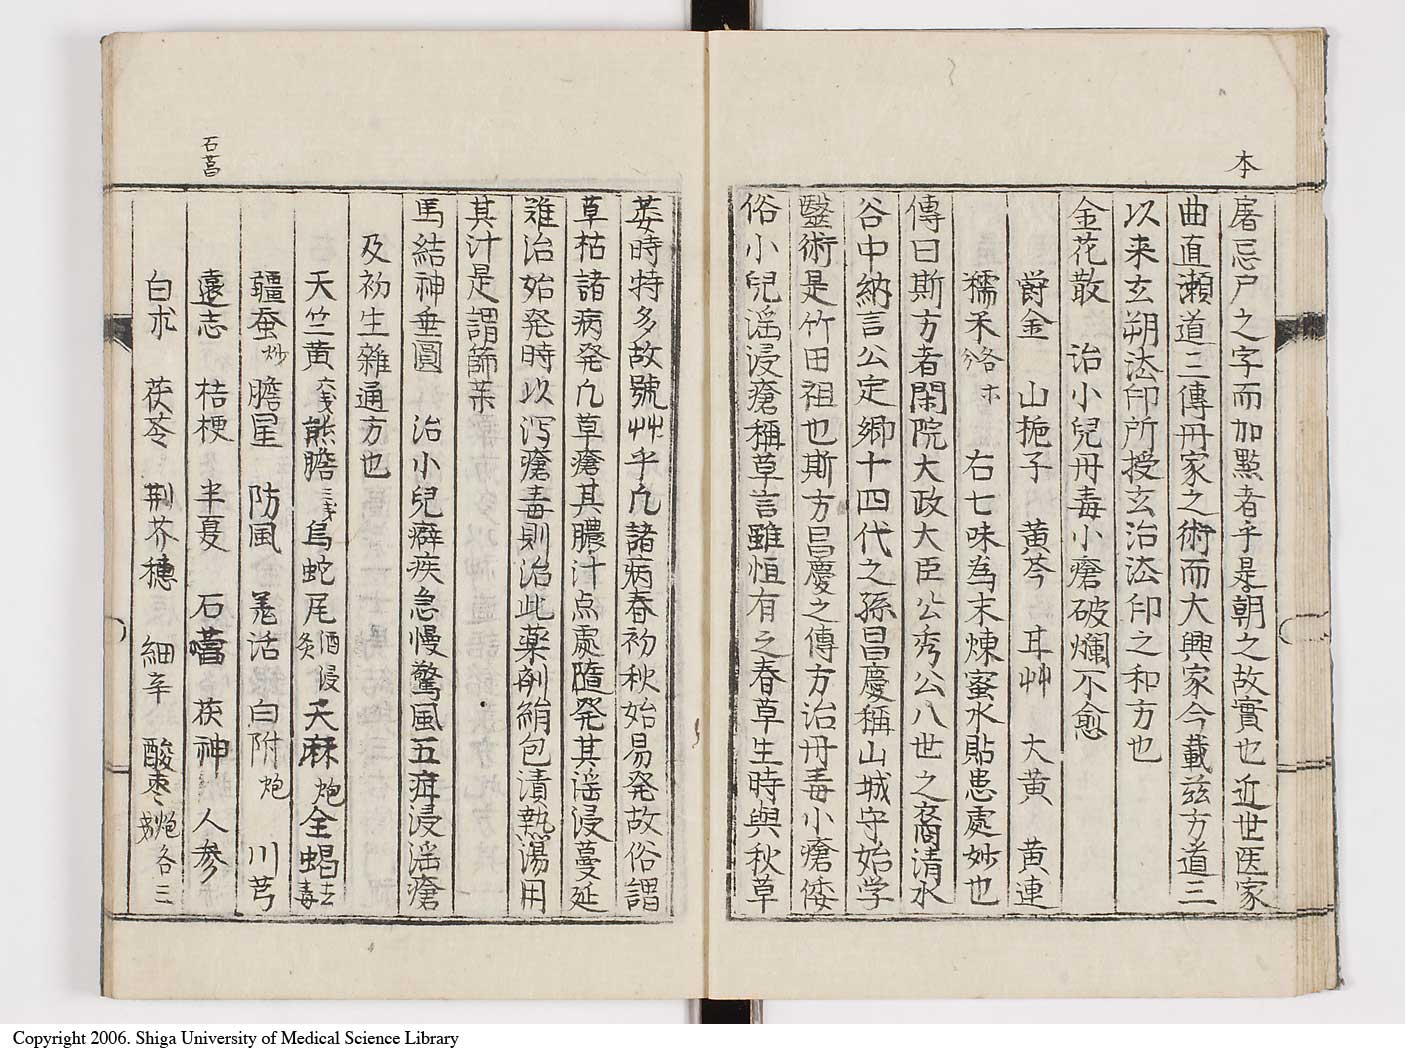 本
屠忌戸之字而加㸃者乎是朝之故實也近世医家
曲直瀬道三傳丹家之術而大興家今載茲方道三
以来玄朔法印所授玄治法印之和方也
金花散 治小兒丹毒小瘡破爛不愈
欝金 山梔子 黄芩 耳艸 大黄 黄連
糯米 各 右七味為末煉蜜水貼患處妙也
傳曰斯方者閑院大政大臣公秀公八世之裔清水
谷中納言公定卿十四代之孫昌慶稱山城守始学
醫術是竹田祖也斯方昌慶之傳方治丹毒小瘡倭
俗小兒滛浸瘡稱草言雖恒有之春草生時與秋草
萎時特多故號艸乎凢諸病春初秋始易発故俗謂
草枯諸病発凢草瘡其膿汁点處隨発其滛浸蔓延
難治始発時以瀉瘡毒則治此薬剤絹包漬熱湯用
其汁是謂篩薬
馬結神垂圓 治小兒癖疾急慢驚風五疳浸滛瘡
及初生雜通方也
天竺黄 六戔 熊膽 三戔 烏蛇尾 酒浸炙 天麻 炮 全蝎 去毒
疆蚕 炒 膽星 防風 羗活 白附 炮 川芎
石菖
遠志 桔梗 半夏 石菖 茯神 人参
白朮 茯苓 荆芥穗 細辛 酸枣 炮 各三
Copyright 2006. Shiga University of Medical Science Library